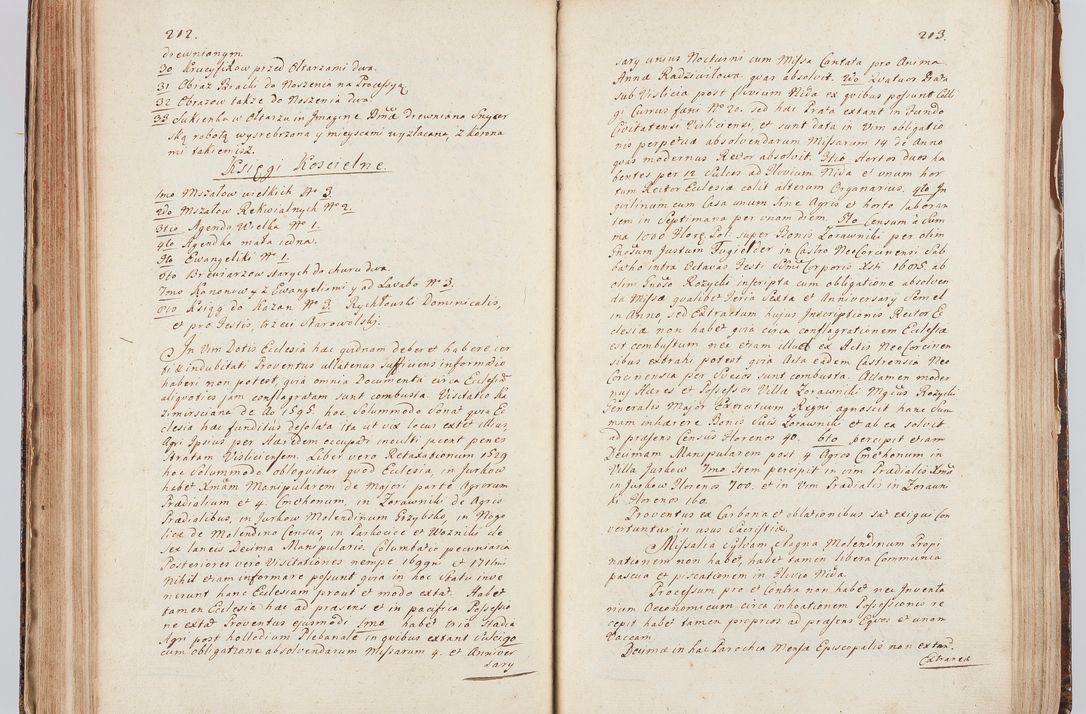 212.
drewnianym.
30 Krucyfixow przed Ołtarzami dwa.
31 Obraz Bracki do Noszenia na Processyą
32 Obrazow także do Noszenia dwa
33 Sukienka w Ołtarzu in Imagine Dmã Drewniana Snycer
ską robotą wysrebrzona y mieyscami wyzłacana, z korona
mi takiemisz.
Księgi Koscielne.
1mo Mszałow wielkich Nº 3
2do Mszałow Rekwialnych Nº 2.
3tio Agendo Wielka Nº 1.
4to Agendka mała iedna.
5to Ewangeliki Nº 1.
6to Brewiarzow starych do churu dwa.
7mo Kanonow y z Ewangeliami y ad Lavabo Nº 3.
8vo Xsiąg do Kazan Nº 3. Rychłowski Dominicalis,
et pro Festis, trzeci Starowolskj.
In Vim Dotis Ecclesia hac quidnam deberet habere cer
ti & indubitati Proventus ullatenus sufficiens informatio
haberi non potest, quia omnia Documenta circa Ecclesiæ
aliquoties jam conflagratam sunt combusta. Visitatio Ka
zimirsciana de Aº 1595 hoc solummodo sonat quia E
clesia hac funditus desolata ita ut vix locus extet illius,
Agri Ipsius per Hæredem occupati inculti jacent penes
stratam Visliciensem. Liber vero Retaxationum 1529
hoc solummodo obloquitur quod Ecclesia in Jurkow
habet Xmam Manipularem de Majori parte Agrorum
Prædialium et 4. Cmethonum, in Zorawniki de Agris
Prædialibus, in Jurkow Molendinum Grzybsko, in Nogo
licæ de Molendino Census, in Parhocice et Woznik de
sex laneis Decima Manipularis. Columbatio pecuniaria
Posteriores vero Visitationes nempe 1699ni et 1711mi
Nihil etiam informare possunt quia in hoc statu inve
nerunt hanc Ecclesiam prout et modo extat. Habet
tamen Ecclesia hac ad præsens et in pacifica Possessio
ne extat Proventus ejusmodi 1mo habet tria Stadia
Agri post hollodium Plebanale in quibus extant
cum obligatione absolvendarum Missarum 4. et Anniver
sary
213.
sary unius Nocturni cum Missa Cantata pro Anima
Annæ Radziwiłowa quas absolvit. 2do Quatuor Prata
sub Vislicia post fluvium Nida ex quibus possunt Colli
gi Currus fani Nº 20. sed hac Prata extant in Fundo
Civitatensi Visliciensi, et sunt data in Vim obligatio
nis perpetuæ absolvendarum Missarum 14 de Anno
quas modernus Rector absolvit. 3tio Hortos duos ha
bentes per 12 Sulcos ad Fluvium Nida et unum hor
tum Rector Ecclesiæ colit alterum Organarius. 4to In
quilinum cum Casa unum sine Agris et horto laboran
tem in Septimana per unam diem. 5to Censum à Sum
ma 1000 Flore Pol. super Bonis Zorawniki per olim
Gnosum Justum Fugielder in Castro NeoCorcinensi Sab
batho intra Octavas Festi SSmi Corporis Xsti 1605. ab
olim Gnoso Rożycki inscripta cum obligatione absolven
da Missæ qualibet Feria Sexta et Anniversary Semel
in Anno, sed Extractum hujus Inscriptionis Rector E
clesiæ non habet quia circa conflagrationem Ecclesiæ
est combustum nec etiam illud ex Actis NeoCorcinen
sibus extrahi potest quia Acta eadem Castrensia Neo
Corcinensia per Suecos sunt combusta. Attamen moder
nus Hæres et Possessor Villæ Zorawniki Mgcus Rożycki
Generalis Major Exercituum Regni agnoscit hanc Sum
mam inhærere Bonis Suis Zorawniki et ab ea solvit
ad præsens Census Florenos 40. 6to percipit etiam
Decimam Manipularem post 4 Agros Cmethonum in
Villa Jurkow 7mo Item percipit in vim Prædialis Xmã
in Jurkow Florenos 700. et in Vim Prædialis in Zorawni
ki Florenos 160.
Proventus ex Carbona et oblationibus sat exigui Con
vertuntur in usus Sacristiæ.
Missalia Sylvam Stagna Molendinum Propi
nationem non habet, habet tamen libera Communia
pascua et piscationem in Fluvio Nida.
Processum pro et Contra non habet nec Inventa
rium Oeconomicum circa inhoationem Possessionis re
cepit habet tamen proprios ad præsens Equos et unam
Vaccam.
Decimæ in hac Parochia Mensæ Episcopalis non extant.
Extranea